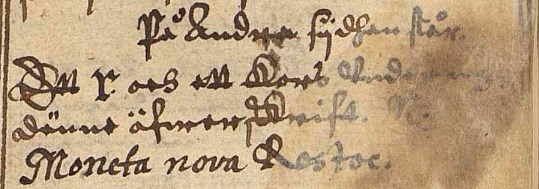 På Andre sijdhan står.
Ett r. och ett Kors Under
denne åfwerskrift. N.
Moneta nova Rostoc.